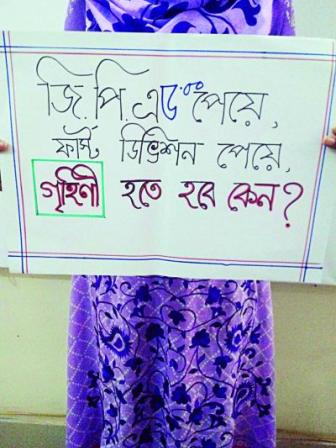 জি.পি.এ ৫.০০ পেয়ে,
ফার্স্ট ডিভিশন পেয়ে,
গৃহিনী হতে হবে কেন?